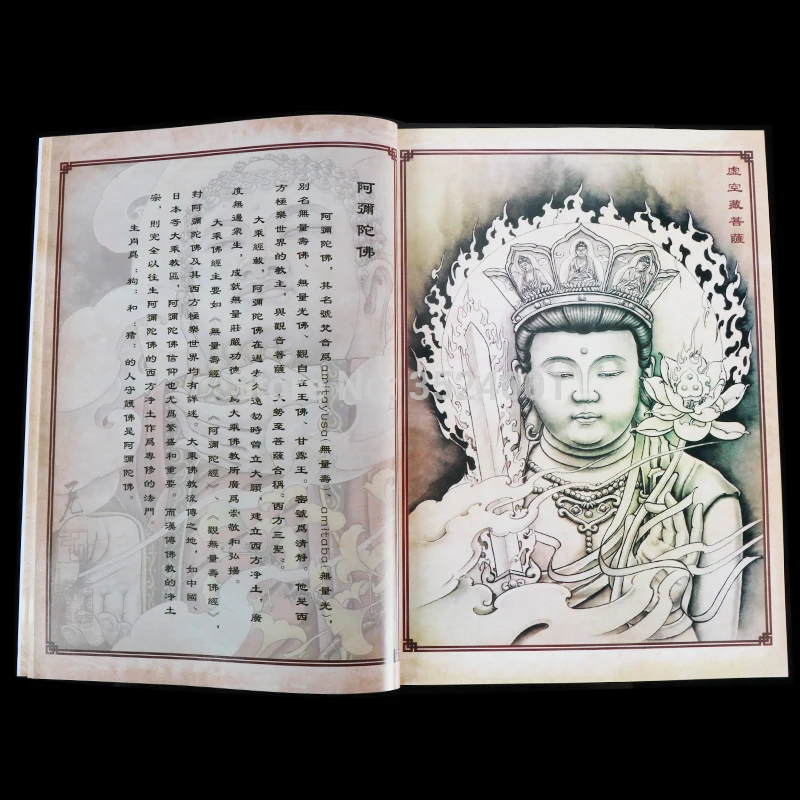 阿彌陀佛
阿彌陀佛，其名號梵音爲amitayusa(無量壽)，amitaba(無量光)，
別名無量壽佛、無量光佛、觀自在王佛、甘露王。密號爲清靜。他是西
方極樂世界的教主，與觀音菩薩、大勢至菩薩合稱“西方三聖”。
大乘經載，阿彌陀佛在過去久遠劫時曾立大願，建立西方净土，廣
度無邊衆生，成就無量莊嚴功德，爲大乘佛教所廣爲崇敬和弘揚。
大乘佛經主要如《無量壽經》、《阿彌陀經》、《觀無量壽佛經》，
對阿彌陀佛及其西方極樂世界均有詳述。大乘佛教流傳之地，如中國、
日本等大乘教區，阿彌陀佛信仰也尤爲繁盛和重要。而漢傳佛教的净土
宗，則完全以往生阿彌陀佛的西方净土作爲專修的法門。
生肖爲：狗：和：猪：的人守護佛是阿彌陀佛。
虛空藏菩薩